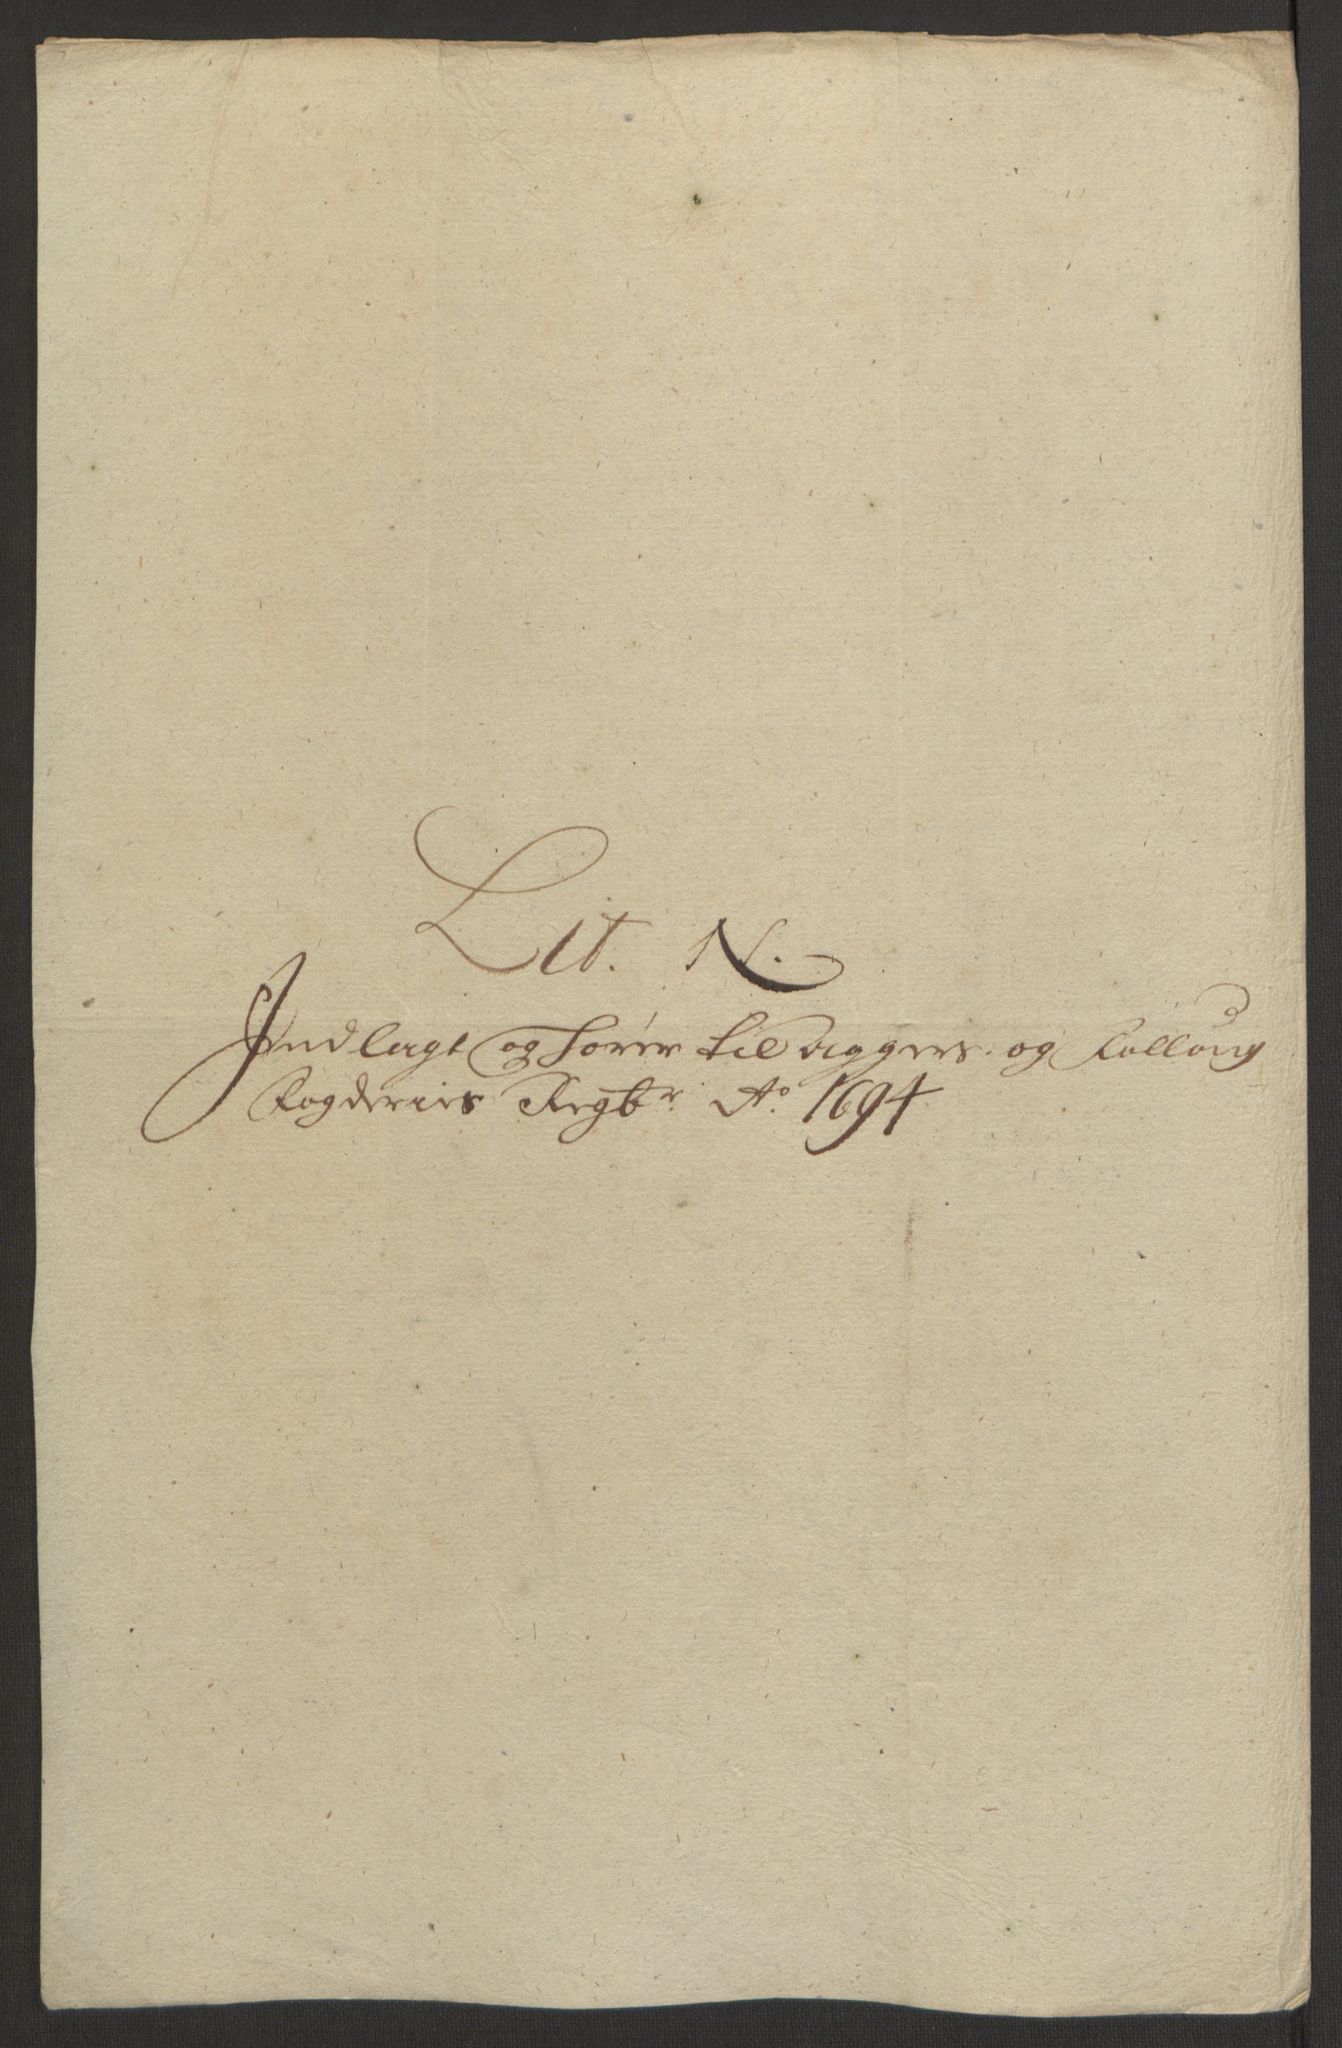 Lit. N.
Indlagt og hörer til Aggers og Folloug
Fogderies Regbr. Ao. 1694